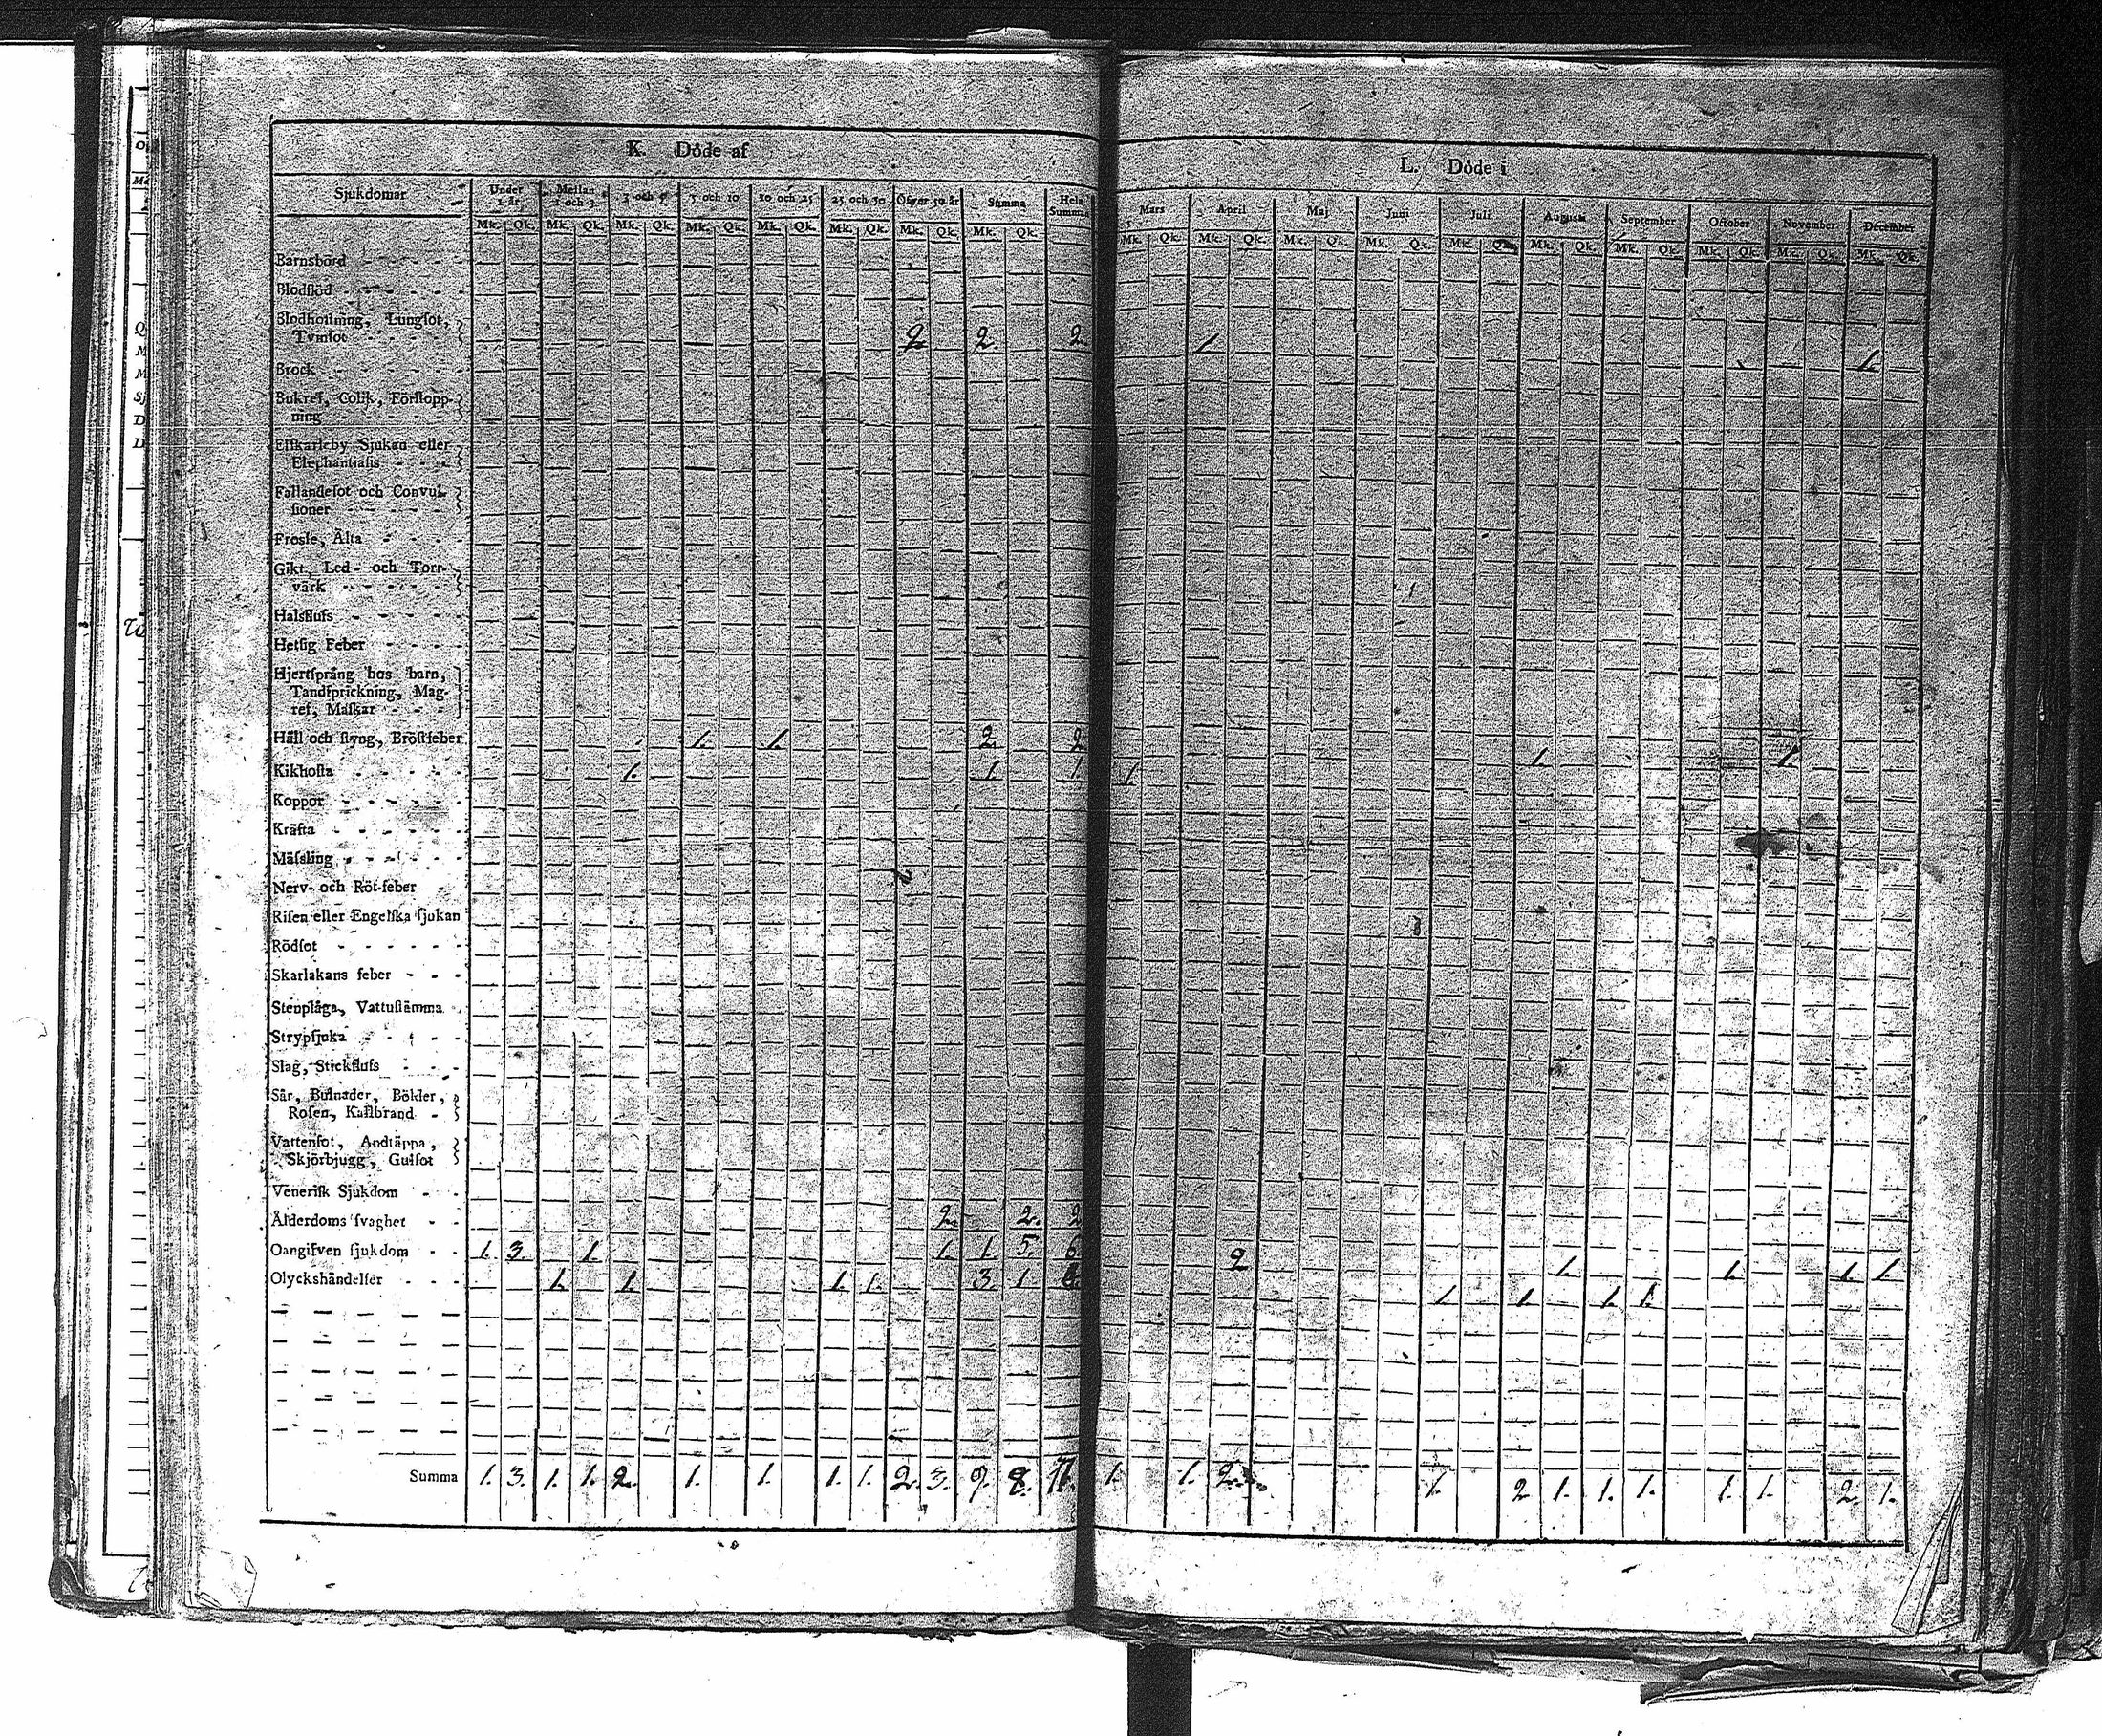 K. Döde af
Sjukdomar Under 1 år. Mellan 1 och 3 3 och 5 5 och 10 10 och 25 25 och 50 Öfver 50 år Summa Hela Summa
Mk. Qk. Mk. Qk. Mk. Qk. Mk. Qk. Mk. Qk. Mk. Qk. Mk. Qk. Mk. Qk.
Barnsbörd
Blodflöd
Blodhostning, Lungſot,
Tvinſot 2. 2. 2.
Brock
Bukref, Colik, Förſtopp-
ning
Elfkarleby Sjukan eller
Elephantiaſis
Fallandeſot och Convul-
ſioner
Frosſe, Älta
Gikt, Led- och Torr-
värk
Halsfluſs
Hetſig Feber
Hjertſprång hos barn,
Tandſprickning, Mag-
ref, Maſkar
Håll och ſtyng, Bröſtfeber 1. 1. 2. 2.
Kikhoſta 1. 1. 1
Koppor
Kräfta
Mäſsling
Nerv- och Röt-feber
Riſen eller Engelſka ſjukan
Rödſot
Skarlakans feber
Stenplåga, Vattuſtämma
Strypſjuka
Slag, Stickfluſs
Sår, Bulnader, Bölder,
Roſen, Kallbrand
Vattenſot, Andtäppa,
Skjörbjugg, Gulſot
Veneriſk Sjukdom
Ålderdoms ſvaghet 2. 2. 2
Oangifven ſjukdom 1. 3. 1. 1. 1. 5. 6
Olyckshändelſer 1. 1. 1. 1. 3. 1.
Summa 1. 3. 1. 1. 2. 1. 1. 1. 1. 2. 3. 9. 8. 17.
L. Döde i
Mars April Maj Juni Juli Auguſti September October November December
Mk. Qk. Mk. Qk. Mk. Qk. Mk. Qk. Mk. Qk. Mk. Qk. Mk. Qk. Mk. Qk. Mk. Qk. Mk. Qk.
1. 1.
1. 1
1.
2 1. 1. 1. 1.
1. 1. 1. 1.
1. 1. 2. 1. 2 1. 1. 1. 1. 1. 2. 1.